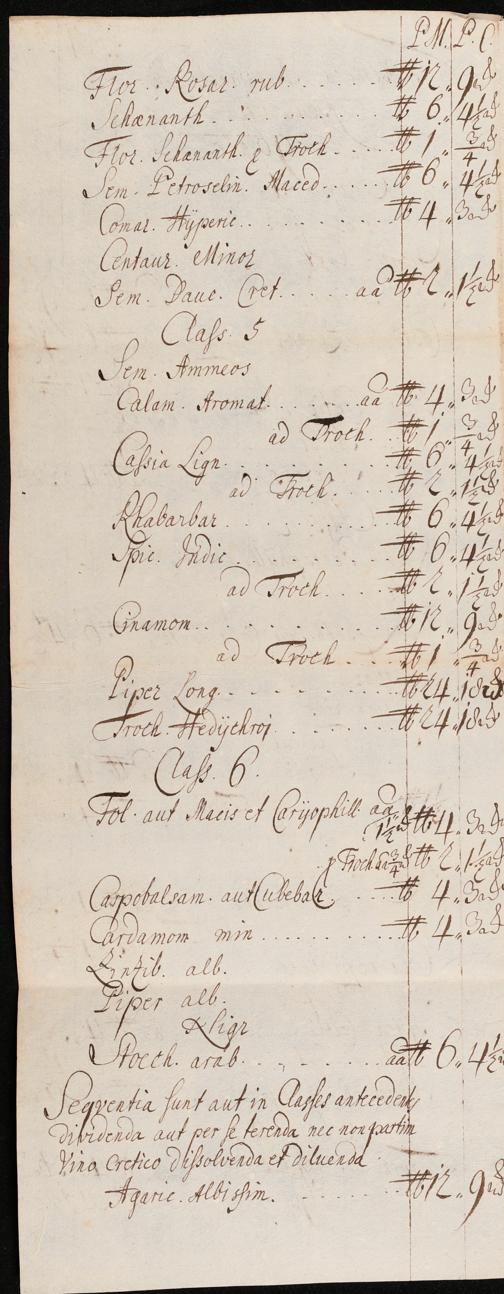 P.M. P. C.
Flor. Rosar. rub ℔ 12 „ 9
Schænanth ℔ 6 „ 4½
Flor. Schænanth. p Troch ℔ 1 „ ¾
Sem. Petroselin. Maced ℔ 6 „ 4½
Comar. Hÿperic ℔ 4 „ 3
Centaur. Minor
Sem. Dauc. Cret. aā ℔ 2 „ 1½
Class. 5
Sem. Ammeos
Calam. Aromat. aā ℔ 4 „ 3
ad Troch. ℔ 1 „ ¾
Cassia Lign. ℔ 6 „ 4½
ad Troch. ℔ 2 „ 1½
Rhabarbar ℔ 6 „ 4½
Spic. Indic ℔ 6 „ 4½
ad Troch ℔ 2 „ 1½
Cinamom ℔ 12 „ 9
ad Troch ℔ 1 „ ¾
Piper Long. ℔ 24 „ 18
Troch. Hedÿchroj ℔ 24 „ 18
Class. 6.
Fol. aut Macis et Carÿophill aā 1½ ℔ 4 „ 3
p Troch aā ¾ ℔ 2 „ 1½
Carpobalsam. aut Cubebar. ℔ 4 „ 3
Cardamom min ℔ 4 „ 3
Zinzib. alb.
Piper alb.
& ligr
Stoech. arab. aā ℔ 6 „ 4½
Seqventia sunt aut in Classes antecedent
dividenda aut per se terenda nec non partim
Vino cretico dissolvenda et diluenda
Agaric. Albissim. ℔ 12 „ 9